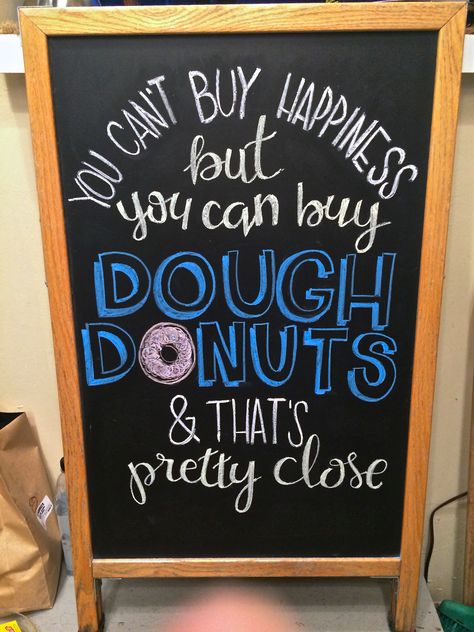 YOU CAN'T BUY HAPPINESS
but
you can buy
DOUGH
DONUTS
& THAT'S
pretty close